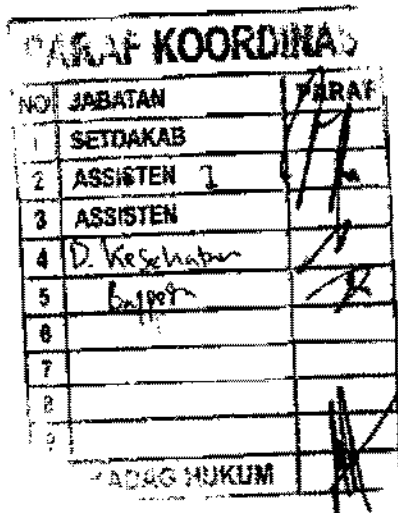 PARAF KOORDINASI
NO JABATAN PARAF
1 SETDAKAB
2 ASSISTEN I
3 ASSISTEN
4 D. Kesehatan
5
6
7
8
9
KABAG HUKUM